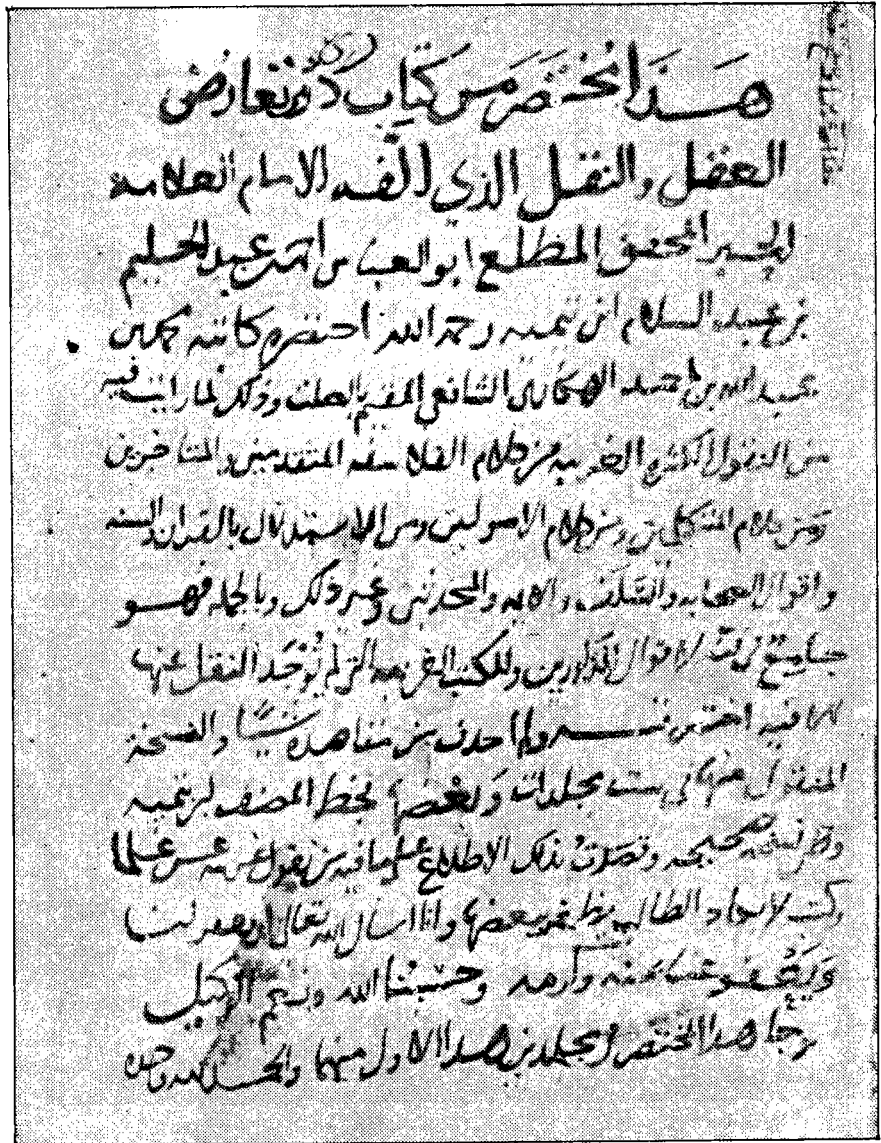 هذا مختصر من كتاب درء تعارض
العقل والنقل الذي الفه الامام العلامه
الحبر المحقق المطلع ابو العباس احمد عبد الحليم
بن عبد السلام ابن تيميه رحمه الله اختصره كاتبه محمد بن
عبد الله بن احمد الهكاري الشافعي المقيم بالصلت وذلك لما رايت فيه
من النقول الكثيره الغريبه من كلام الفلاسفه المتقدمين والمتاخرين
ومن كلام المتكلمين ومن كلام الاصوليين ومن الاستدلال بالقران والسنه
واقوال الصحابه والسلف والايمه والمحدثين وغير ذلك وبالجمله فهو
جامع لاقوال المذكورين وللكتب الغريبه التي لم يوجد النقل عنها
ولم احذف من مقاصده شيًا والنسخة
المنقول منها في ست مجلدات وبعضها بخط المصنف ابن تيميه
نسخه صحيحه وقصدت بذلك الاطلاع على ما فيه من نقول
الطالب بعضها وانا اسال الله تعالى ان يغفر لنا
ويعفو عنا بمنه وكرمه وحسبنا الله ونعم الوكيل
وجا هذا المختصر في مجلدين هذا الاول منهما والحمد لله وحده